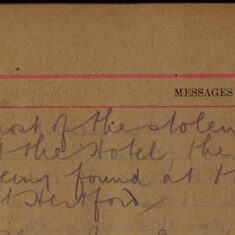 MESSAGES
most of the stolen
at the Hotel, the
being found at t
at Hertford